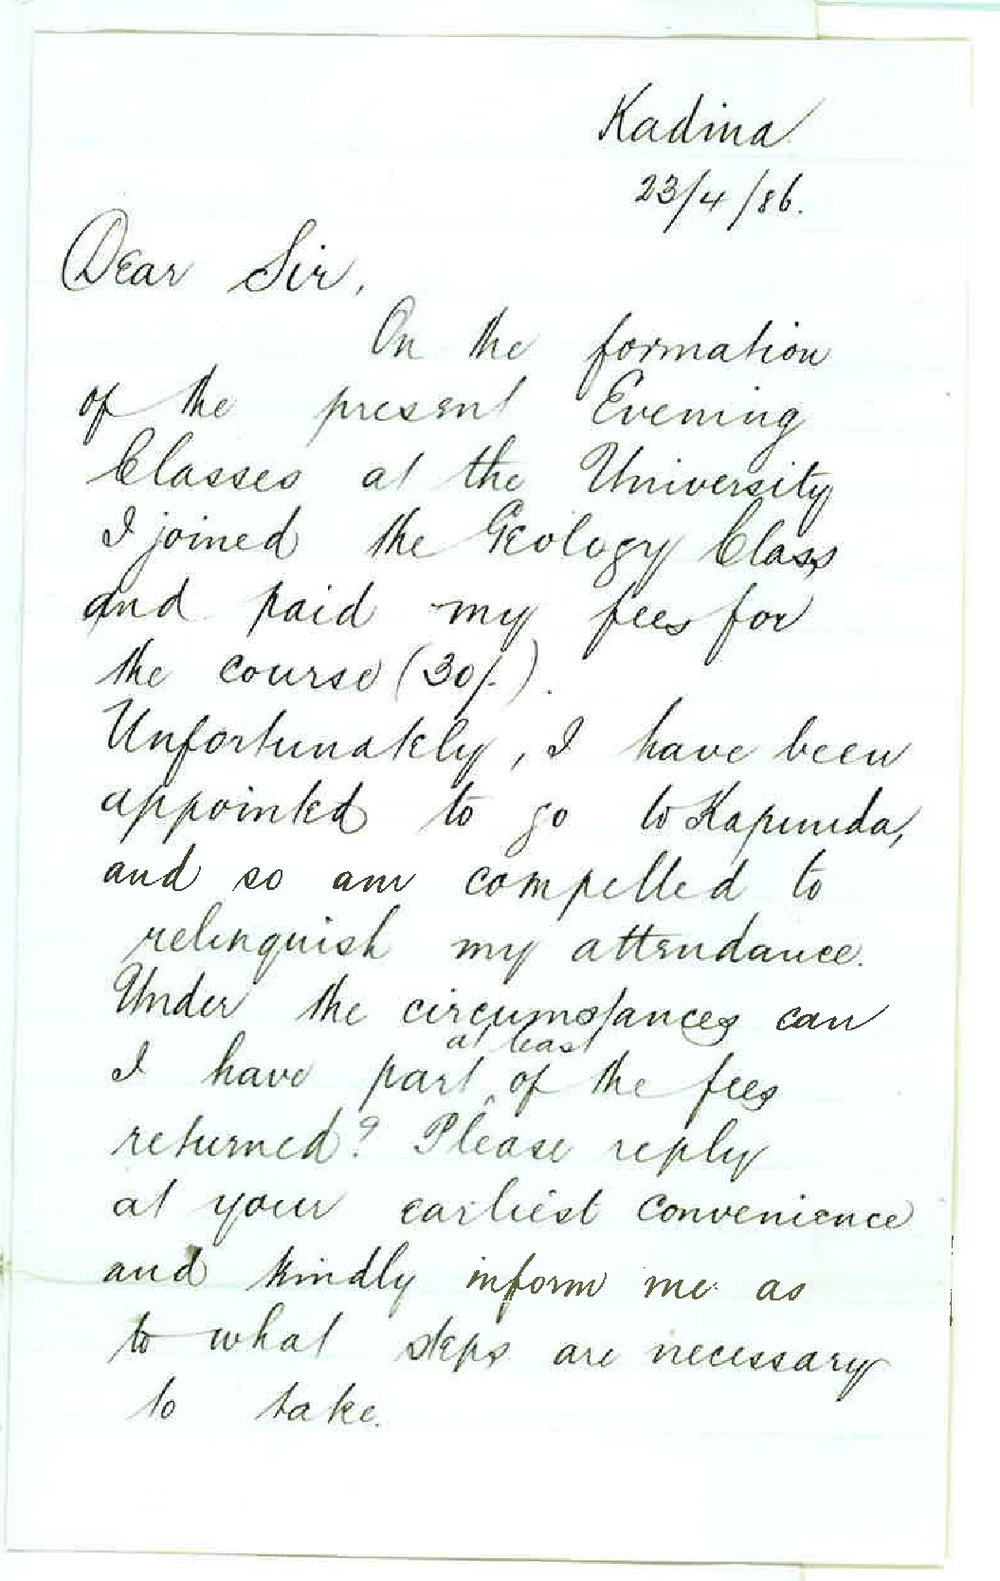 Kadina
23/4/86.
Dear Sir,
On the formation
of the present Evening
Classes at the University
I joined the Geology Class
and paid my fees for
the course (30/-).
Unfortunately, I have been
appointed to go to Kapunda,
and so am compelled to
relinquish my attendance.
Under the circumstances can
at least
I have part ^ of the fees
returned? Please reply
at your earliest convenience
and kindly inform me as
to what steps are necessary
to take.